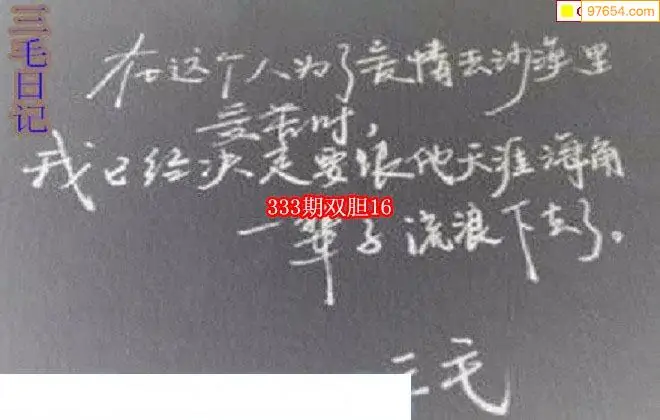 三毛日记
97654.com
在这个人为了爱情去沙漠里
受苦时,
我已经决定要跟他天涯海角
333期双胆16
一辈子流浪下去了。
三毛